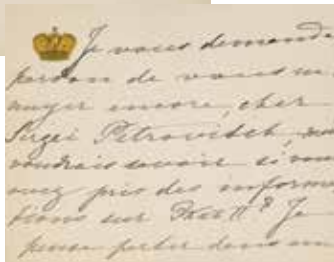 Je vous demande
pardon de vous en
nuyer encore, cher
Sergei Petrovitch,
voudrais savoir si vou
avez pris des informa
tions sur
Je
pense parler dans un